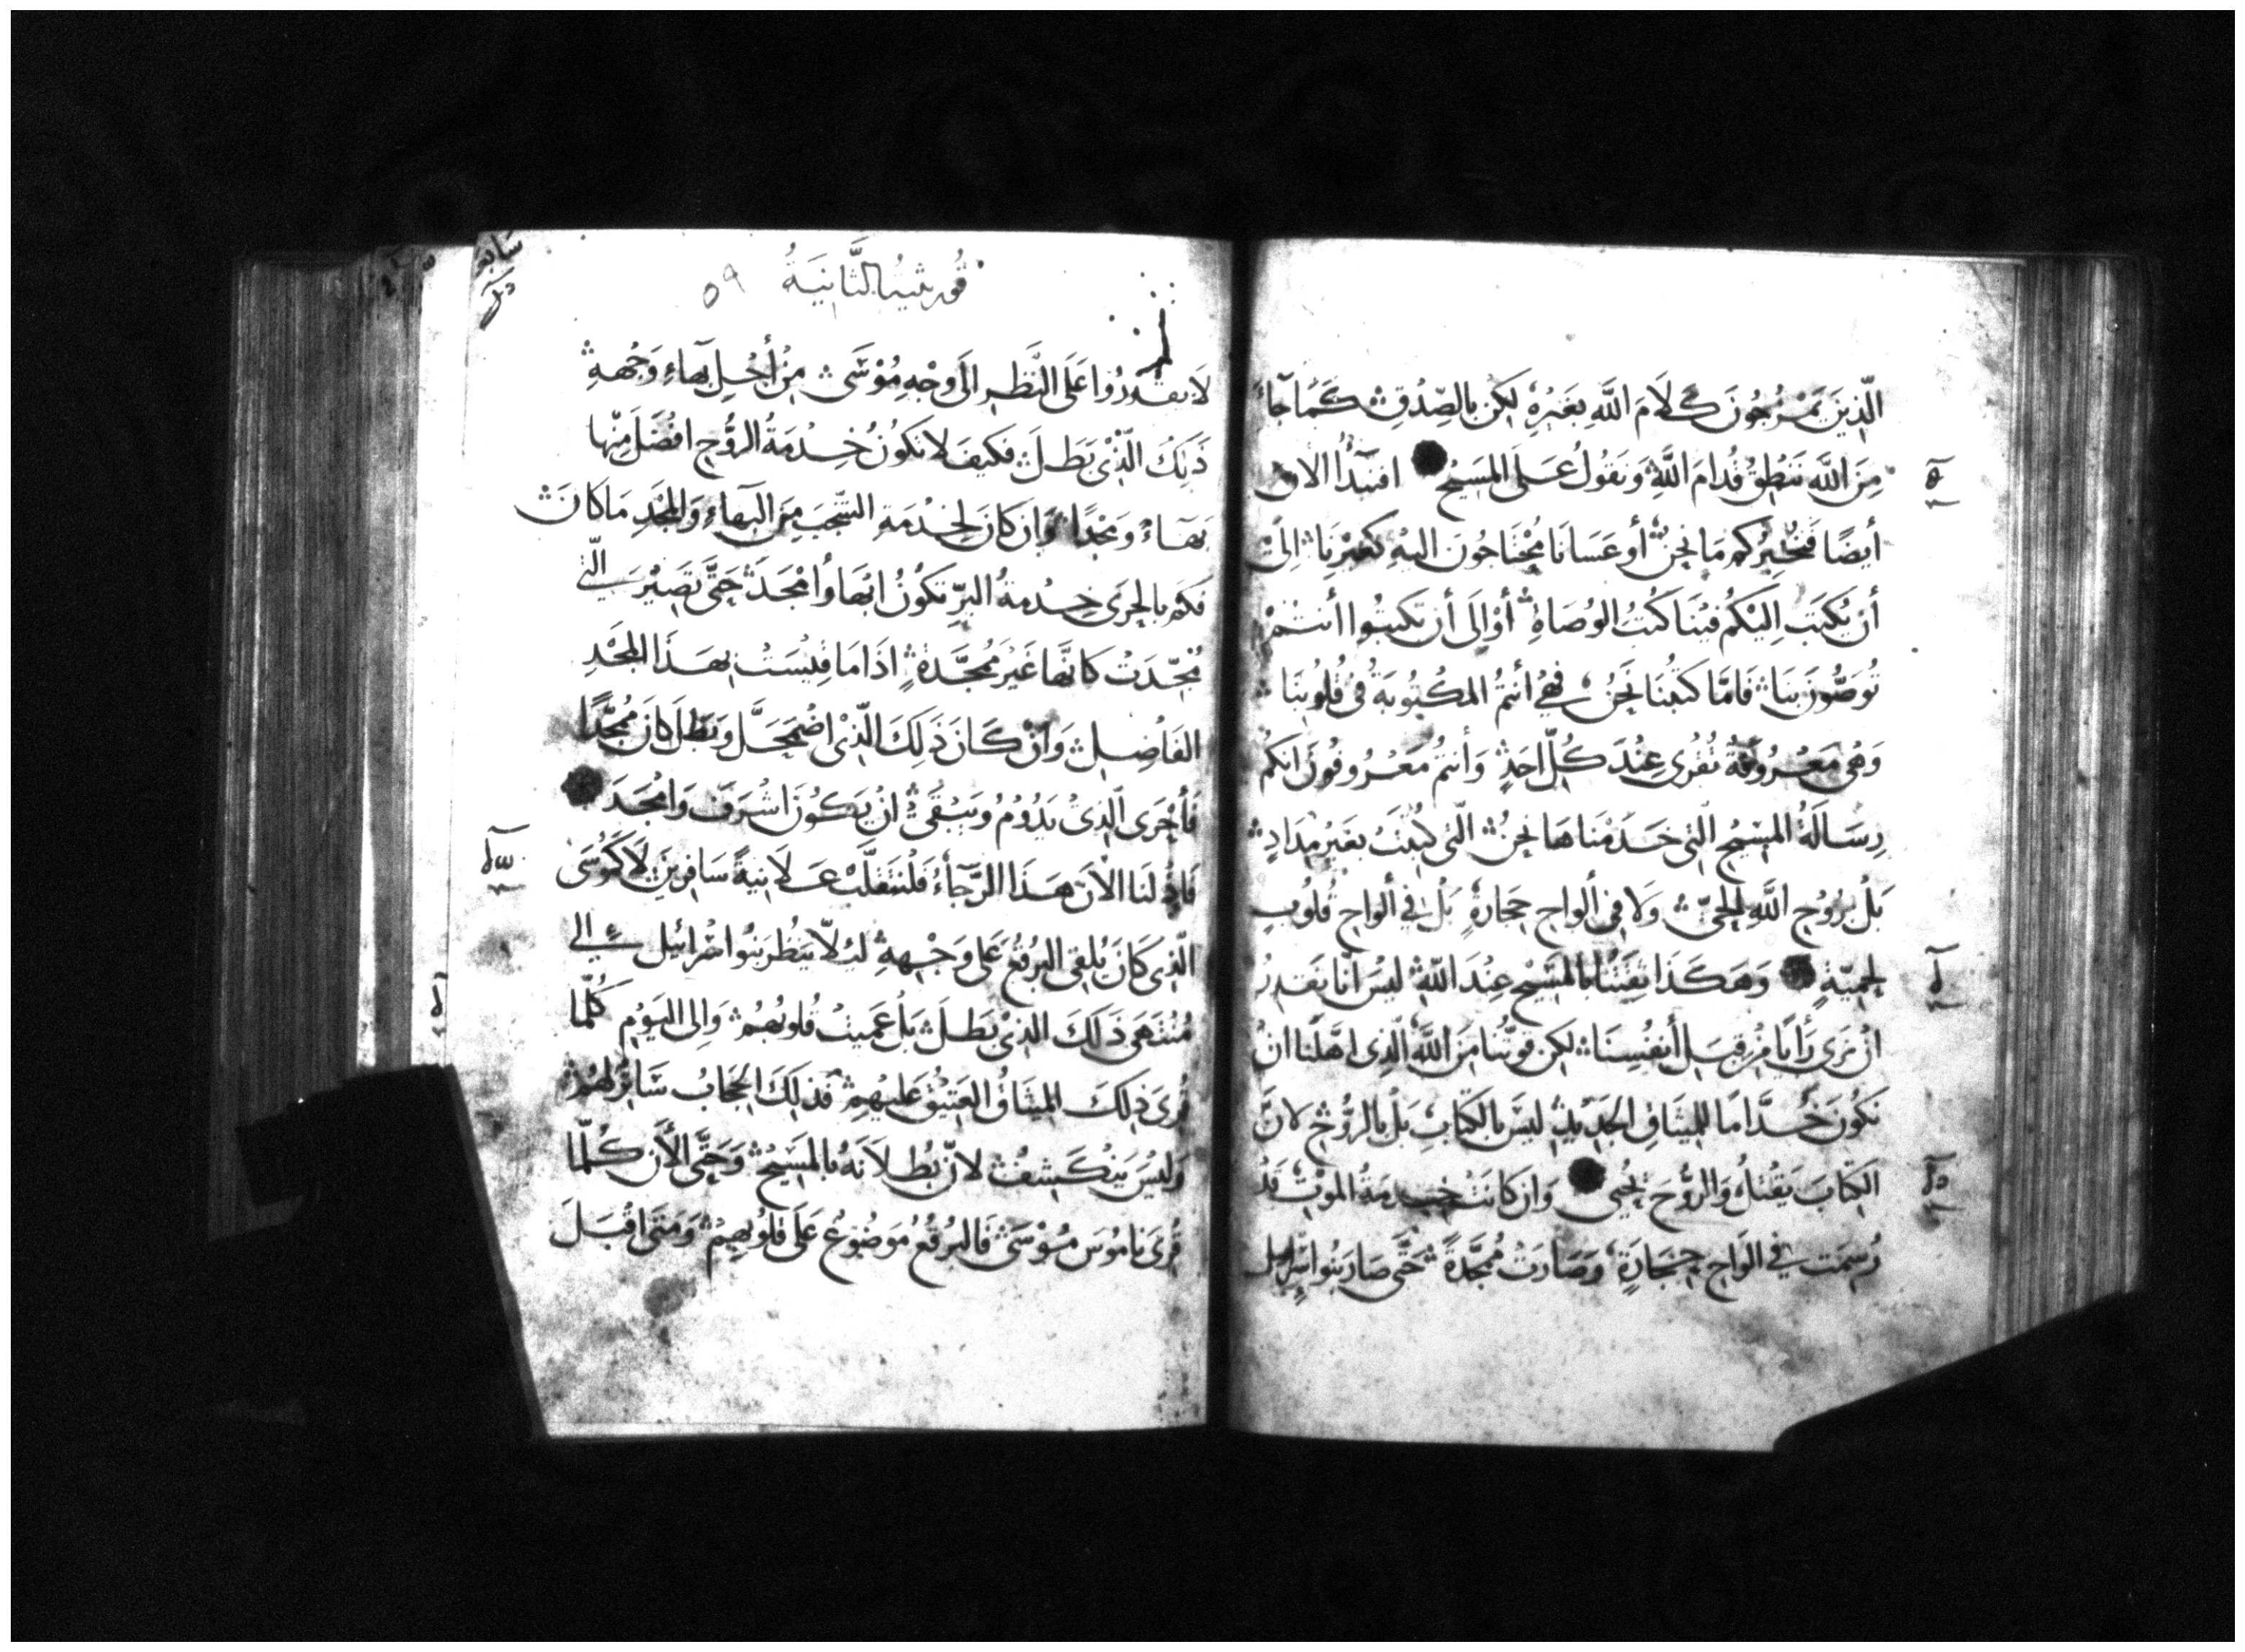 الّذِينَ يَمْزُجُونَ كَلَامَ اللَّهِ بِغَيْرِهِ لَكِن بِالصِّدْقِ كَمَا جَاءَ
مِنَ اللَّه نَنْطِقُ قُدامَ اللَّهِ وَنَقُولُ عَلَى المَسِيحْ افنبدأُ الان
أيضًا فَنُخْبِرُكم مَا نحن أو عَسَانَا مُحْتَاجُونَ اليهِ كغَيْرِنَا الىَ
أن يُكتَب اِلَيْكُم فينَا كُتبُ الوُصَاةِ أوْ الَى أن تكتبُوا أنتمْ
تُوَصُّونَ بِنَا فَامَّا كتبُنَا نَحنُ فهيُ أنتمُ المكْتُوبَةُ فى قُلُوبِنَا
وَهىَ مَعْرُوفَةُ تُقْرَى عِنْدَ كُلّ احَدٍ وَأنتمُ مَعْرُوفُونَ انكُم
رِسَالَةُ المَسِيْحِ الَّتى خَدَمْنَاهَا نحنُ الَّتى كُتبَتْ بغَيْر مِدَادٍ
بَلْ بُروُحِ اللَّهِ الحَىّ وَلَا فى ألواحِ حِجَارةٍ بَلْ فى ألواحِ قُلُوبٍ
لحميّةٍ وَهَكَذَا ثِقَتُنَا بالمَسَيْحِ عِنْدَ اللَّهِ ليْسَ أنا نَقدِرُ
انْ نرَى رَأيًا مِنْ قِبَلِ أنفُسِنَا لكن قوتُنا مِنَ اللَّهِ الَّذِى اهَّلنَا انْ
نَكُونَ خُدَّامًا للمِيثَاقِ الجَدِيدِ ليسَ بِالكِتَابِ بَلْ بِالرُّوُحِ لانَّ
الكِتابَ يَقتلُ وَالرُّوحَ تُحْيى وَان كانَتْ خِدمَةُ الموْتِ قَدْ
رُسِمَت فى الوَاحِ حِجَارَةٍ وَصَارَتْ مُمجَّدَةً حَتَّى صَارَ بَنُوا اسْرايل
سابعه
قُورِنثِيُهْ الثَّانِيَةُ ٥٩
لَا يقدرُوا عَلَى النَّظَرِ الَى وَجْهِ مُوْسَى مِنْ أجْلِ بَهآءِ وَجْهِهِ
ذَلِكَ الَّذْى بَطَلَ فَكيفَ لا تكُونُ خِدْمَةُ الرُّوُحِ افْضَلَ مِنْها
بَهَآءً وَمَجْدًا وَان كانَ لخِدْمَةِ الشَّجَب مِنَ البَهآءِ وَالمَجْدِ مَا كانَ
فكَم بالحرَى خِدْمَةُ البِرّ تكُونُ ابْهَا وُامْجَدَ حَتَّى تَصِيْرَ الَّتى
مُجِّدَتْ كانَّهَا غَيْرَ مُمَجَّدَةٍ اذَا مَا قِيْسَتْ بهَذَا المَجْدِ
الفَاضِلِ وَانْ كَانَ ذَلِكَ الَّذى اضْمَحَلَّ وَبَطَلَ كانَ مُمجَّدًا
فَأحْرَى الَّذِىْ يَدُوْمُ وَيَبْقَى انْ يَكُونَ اشْرَفَ وَامْجَدَ
فَاذْ لَنَا الْانَ هَذَا الرَّجَآءُ فَلْنَتَقَلَّبْ عَلَانِيةً سَافِرينَ لَا كَمُوسَى
الَّذِى كَانَ يُلقِى البُرْقُعَ عَلَى وَجْهِهِ ليْلَّا يَنْظُرَ بَنُوا اسْرائيل الى
مُنْتَهَى ذَلكَ الَّذِىْ بَطَلَ بَلْ عَمِيَتْ قُلُوبُهُمْ وَالِى اليَوْمِ كُلَّمَا
قُرِىَ ذلِكَ المِيثَاقُ العَتِيْقُ عَليْهِمْ فَذلِكَ الحِجَابُ سَاتِرٌ لهُمْ
وَلَيْسَ يَنْكَشِفُ لانّ بُطلَانَهُ بالمَسِيْحْ وَحَتَّى الْأَنَ كُلَّمَا
قُرىَ نامُوسَ مُوْسَىْ فَالبُرْقُعُ مَوضُوعُ عَلَى قلُوبِهِمْ وَمَتَى اقْبَلَ